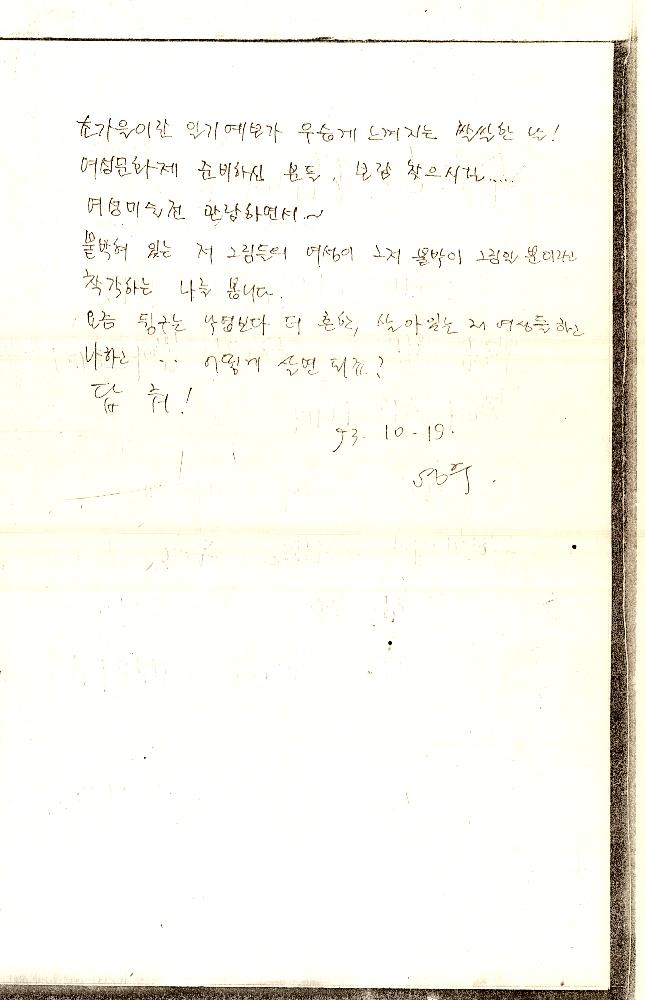 초가을이란 일기예보가 우습게 느껴지는 쌀쌀한 날!
여성문화제 준비하신 분들, 보람 찾으시길.....
여성미술전 관람하면서~
붙박혀 있는 저 그림들의 여성이 그저 붙박이 그림일 뿐이라고
착각하는 나를 봅니다.
요즘 뒹구는 낙엽보다 더 흔한, 살아있는 저 여성들하고
나하고 ... 어떻게 살면 되죠?
답 줘!
93. 10. 19.